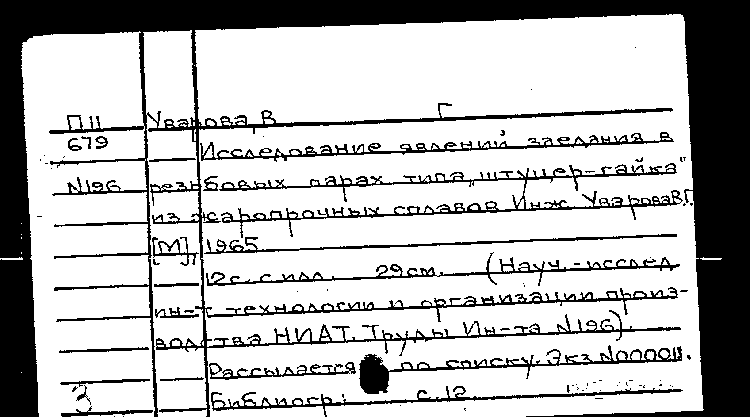 П11 Уварова, В Г
679 Исследование явлений заедания в
N196 резьбовых парах типа „штуцер-гайка"
из жаропрочных сплавов Инж Уварова В.Г.
[М], 1965
12с. с илл. 29см. (Науч.-исслед
ин-т технологии и организации произ-
водства НИАТ. Труды Ин-та N196).
Рассылается по списку. Экз N000011.
3 Библиогр: с.12